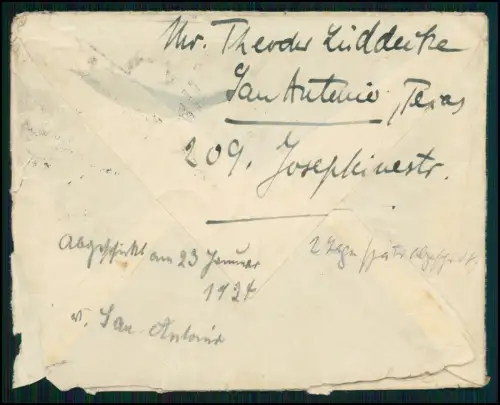 Mr. Theodor Lüddecke
San Antonio, Texas
209. Josephinestr.
Abgeschickt am 23 Januar
2 Tage später abgeschickt
1924
v. San Antonio